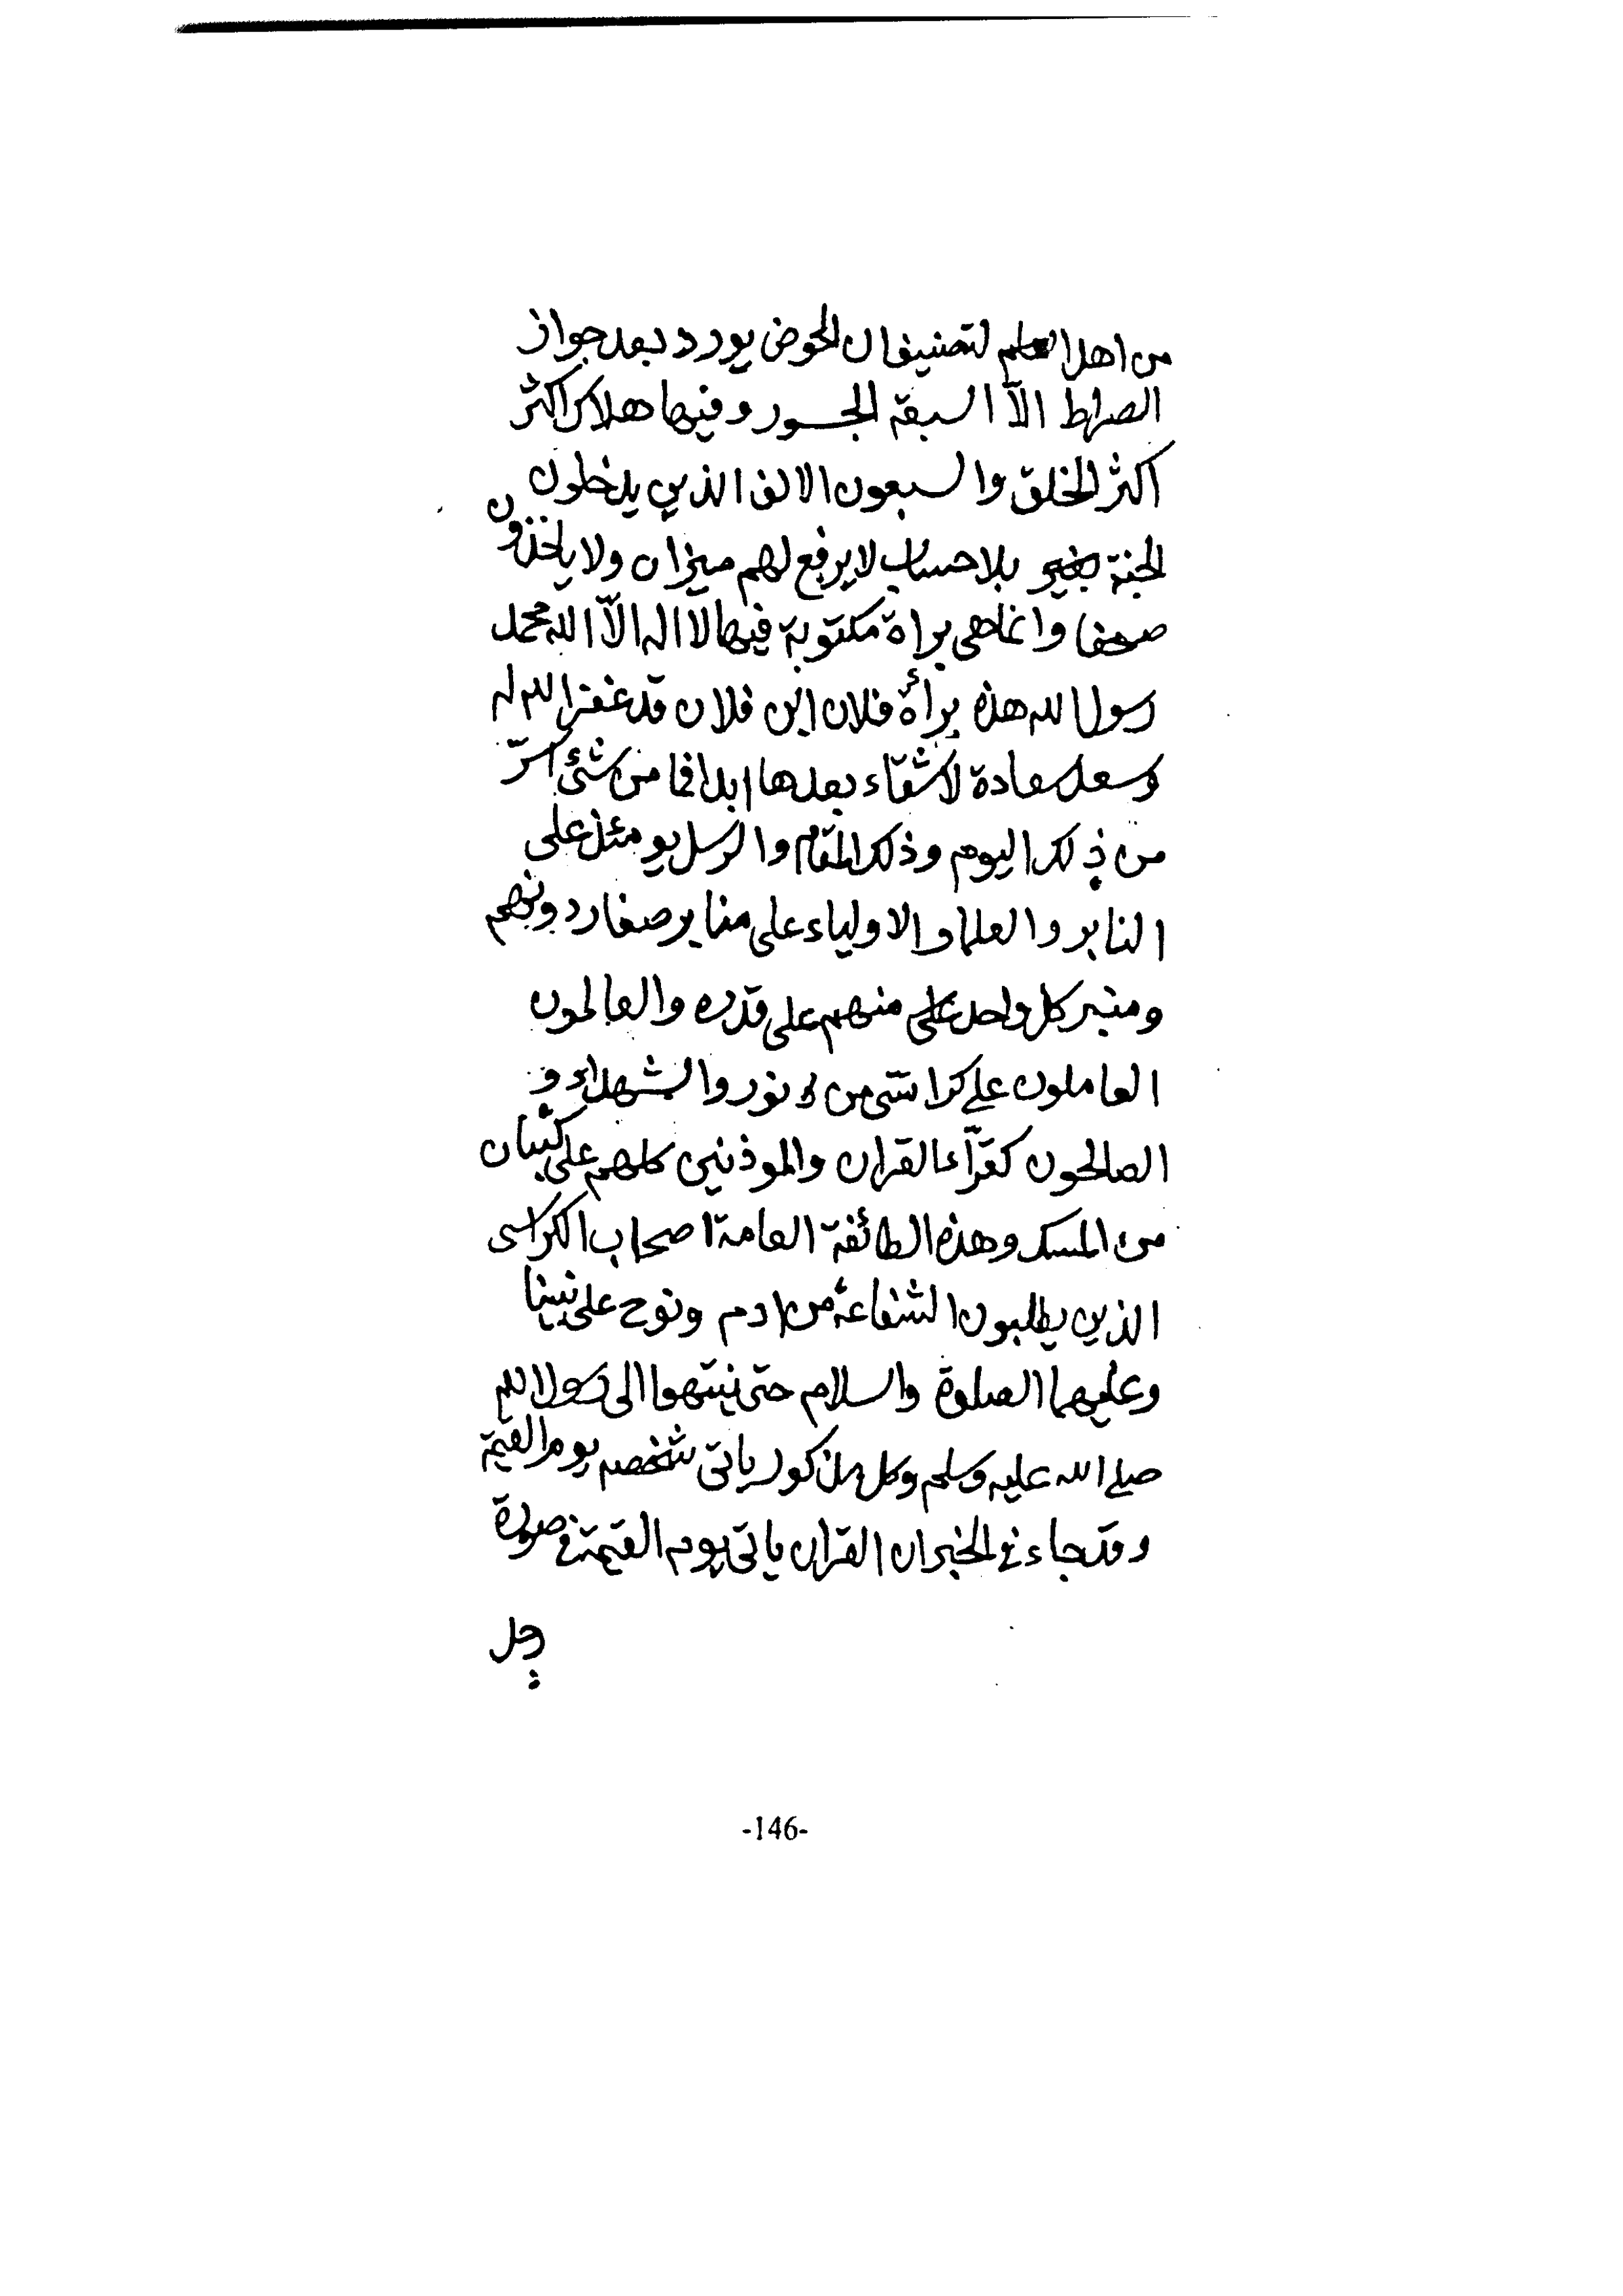 من اهل العلم لتصنيف ان الحوض يورد بعد جواز
الصراط الّا السبقة الجسور وفيها هلاك اكثر
اكثر الخلق والسبعون الالف الذين يدخلون
الجنة بغير بلا حساب لا يرفع لهم ميزان ولا ياخذون
صحفا وانما هى براة مكتوبة فيها لا اله الّا الله محمد
رسول الله هذه براة فلان ابن فلان قد غفر الله له
وسعد سعادة لا شقاء بعدها ابدا فما من شئ اسرّ
من ذلك اليوم وذلك المقام والرسل يومئذ على
النابر والعلما والاولياء على منابر صغار دونهم
ومنبر كل واحد على منهم على قدره والعالمون
العاملون على كراسى من نور والشهداء و
الصالحون كقرّاء القران والموذنين كلهم على كثبان
من المسك وهذه الطائفة العامة اصحاب الكراسى
الذين يطلبون الشفاعة من ادم ونوح على نبينا
وعليهما الصلوة والسلام حتى ينتهوا الى رسول الله
صلى الله عليه وسلم وكل مذكور ياتى شخصه يوم القيمة
وقد جاء فى الخبر ان القران ياتى يوم القيمة فى صورة
رجل
-146-